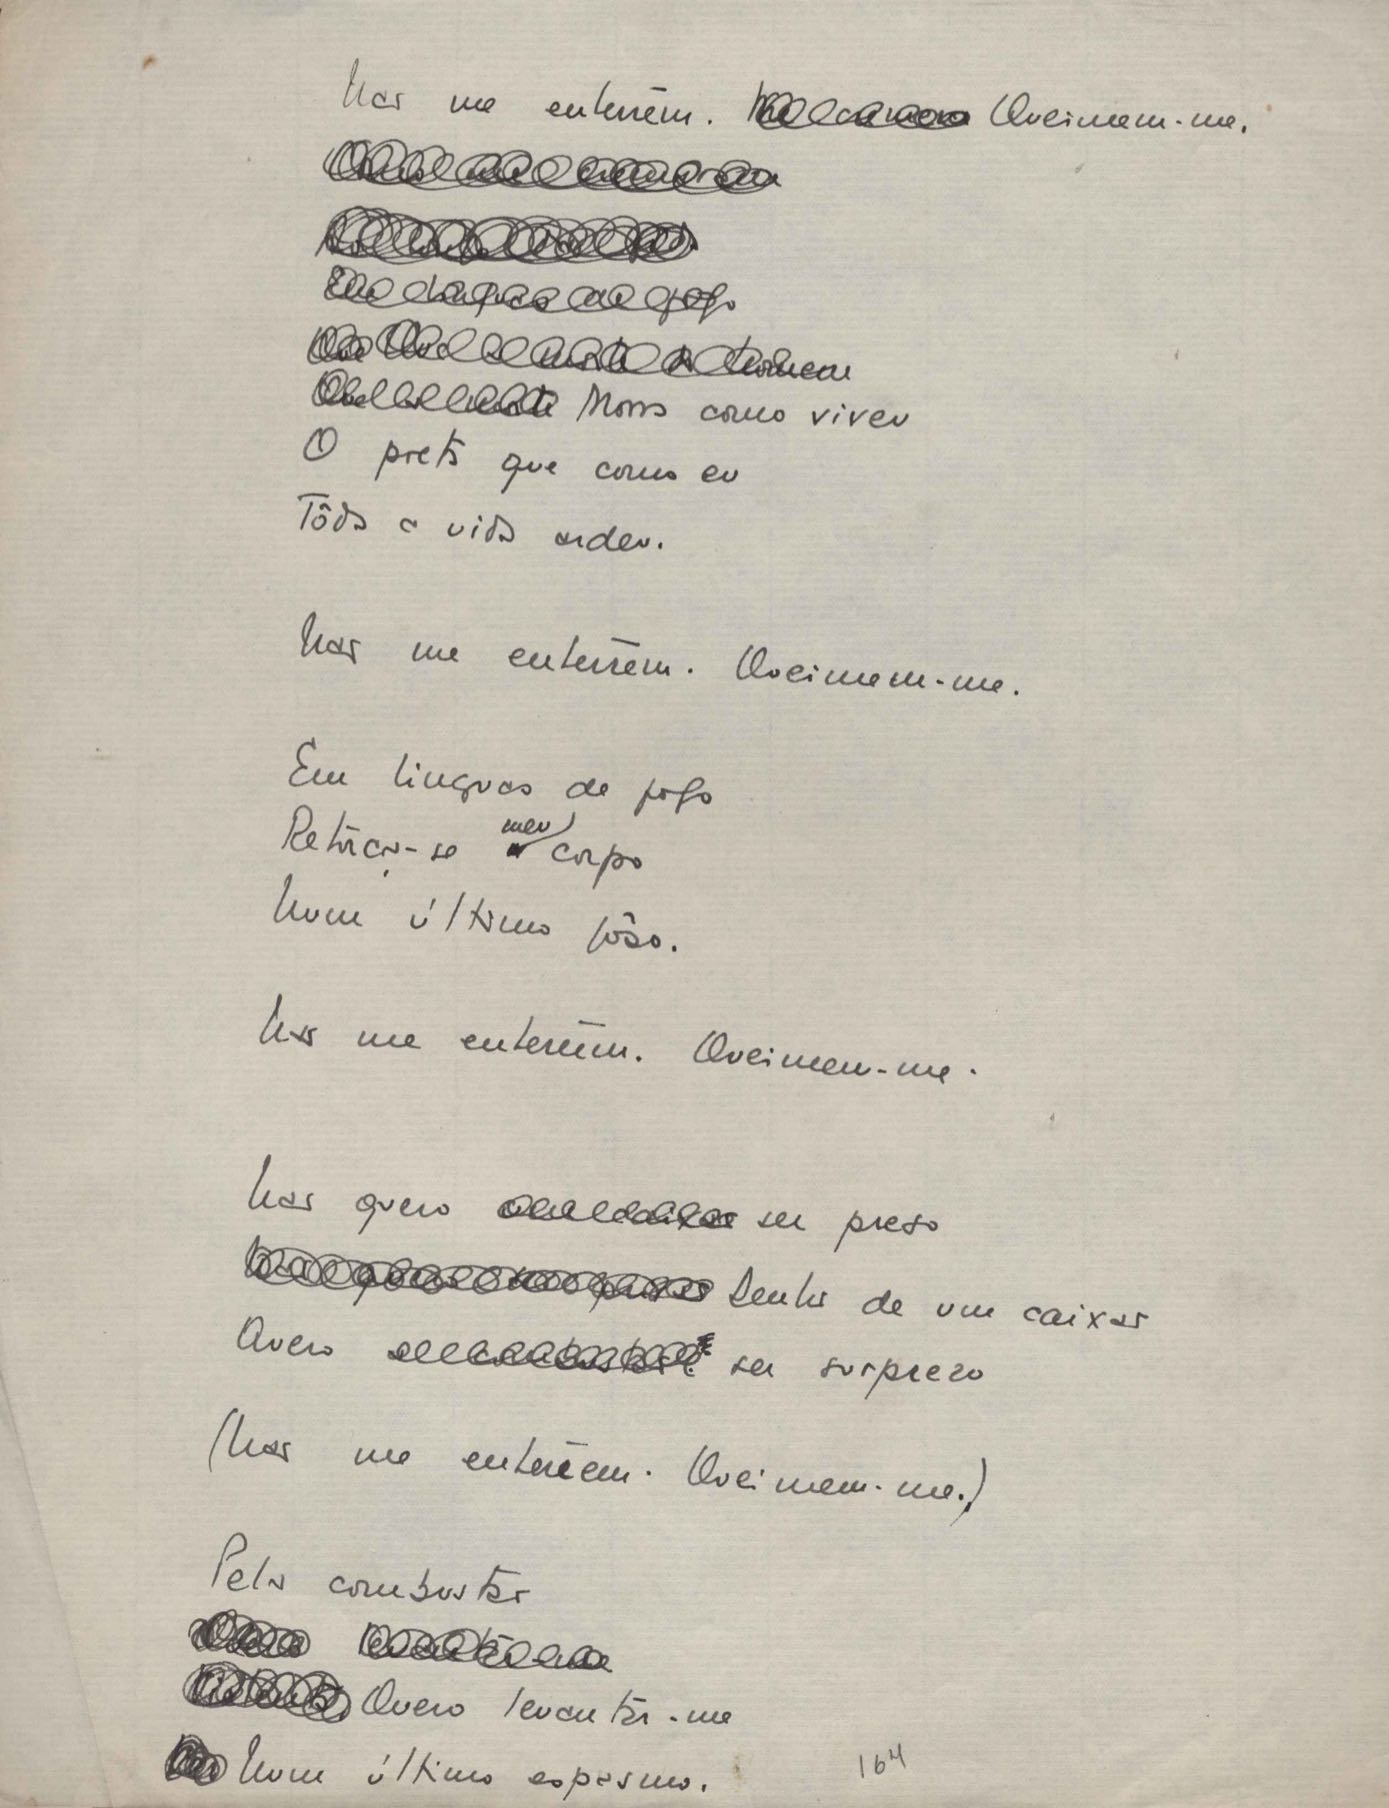 Não me enterrem. Queimem-me.
Morro como viveu
O preto que como eu
Tôda a vida ardeu.
Não me enterrem. Queimem-me.
Em linguas de fogo
Retorça-se meu corpo
Num último gôso.
Não me enterrem. Queimem-me.
Não quero ser preso
Dentro de um caixão
Quero ser surpreso
(Não me enterrem. Queimem-me.)
Pela combustão
Quero levantar-me
Num último espasmo.
164